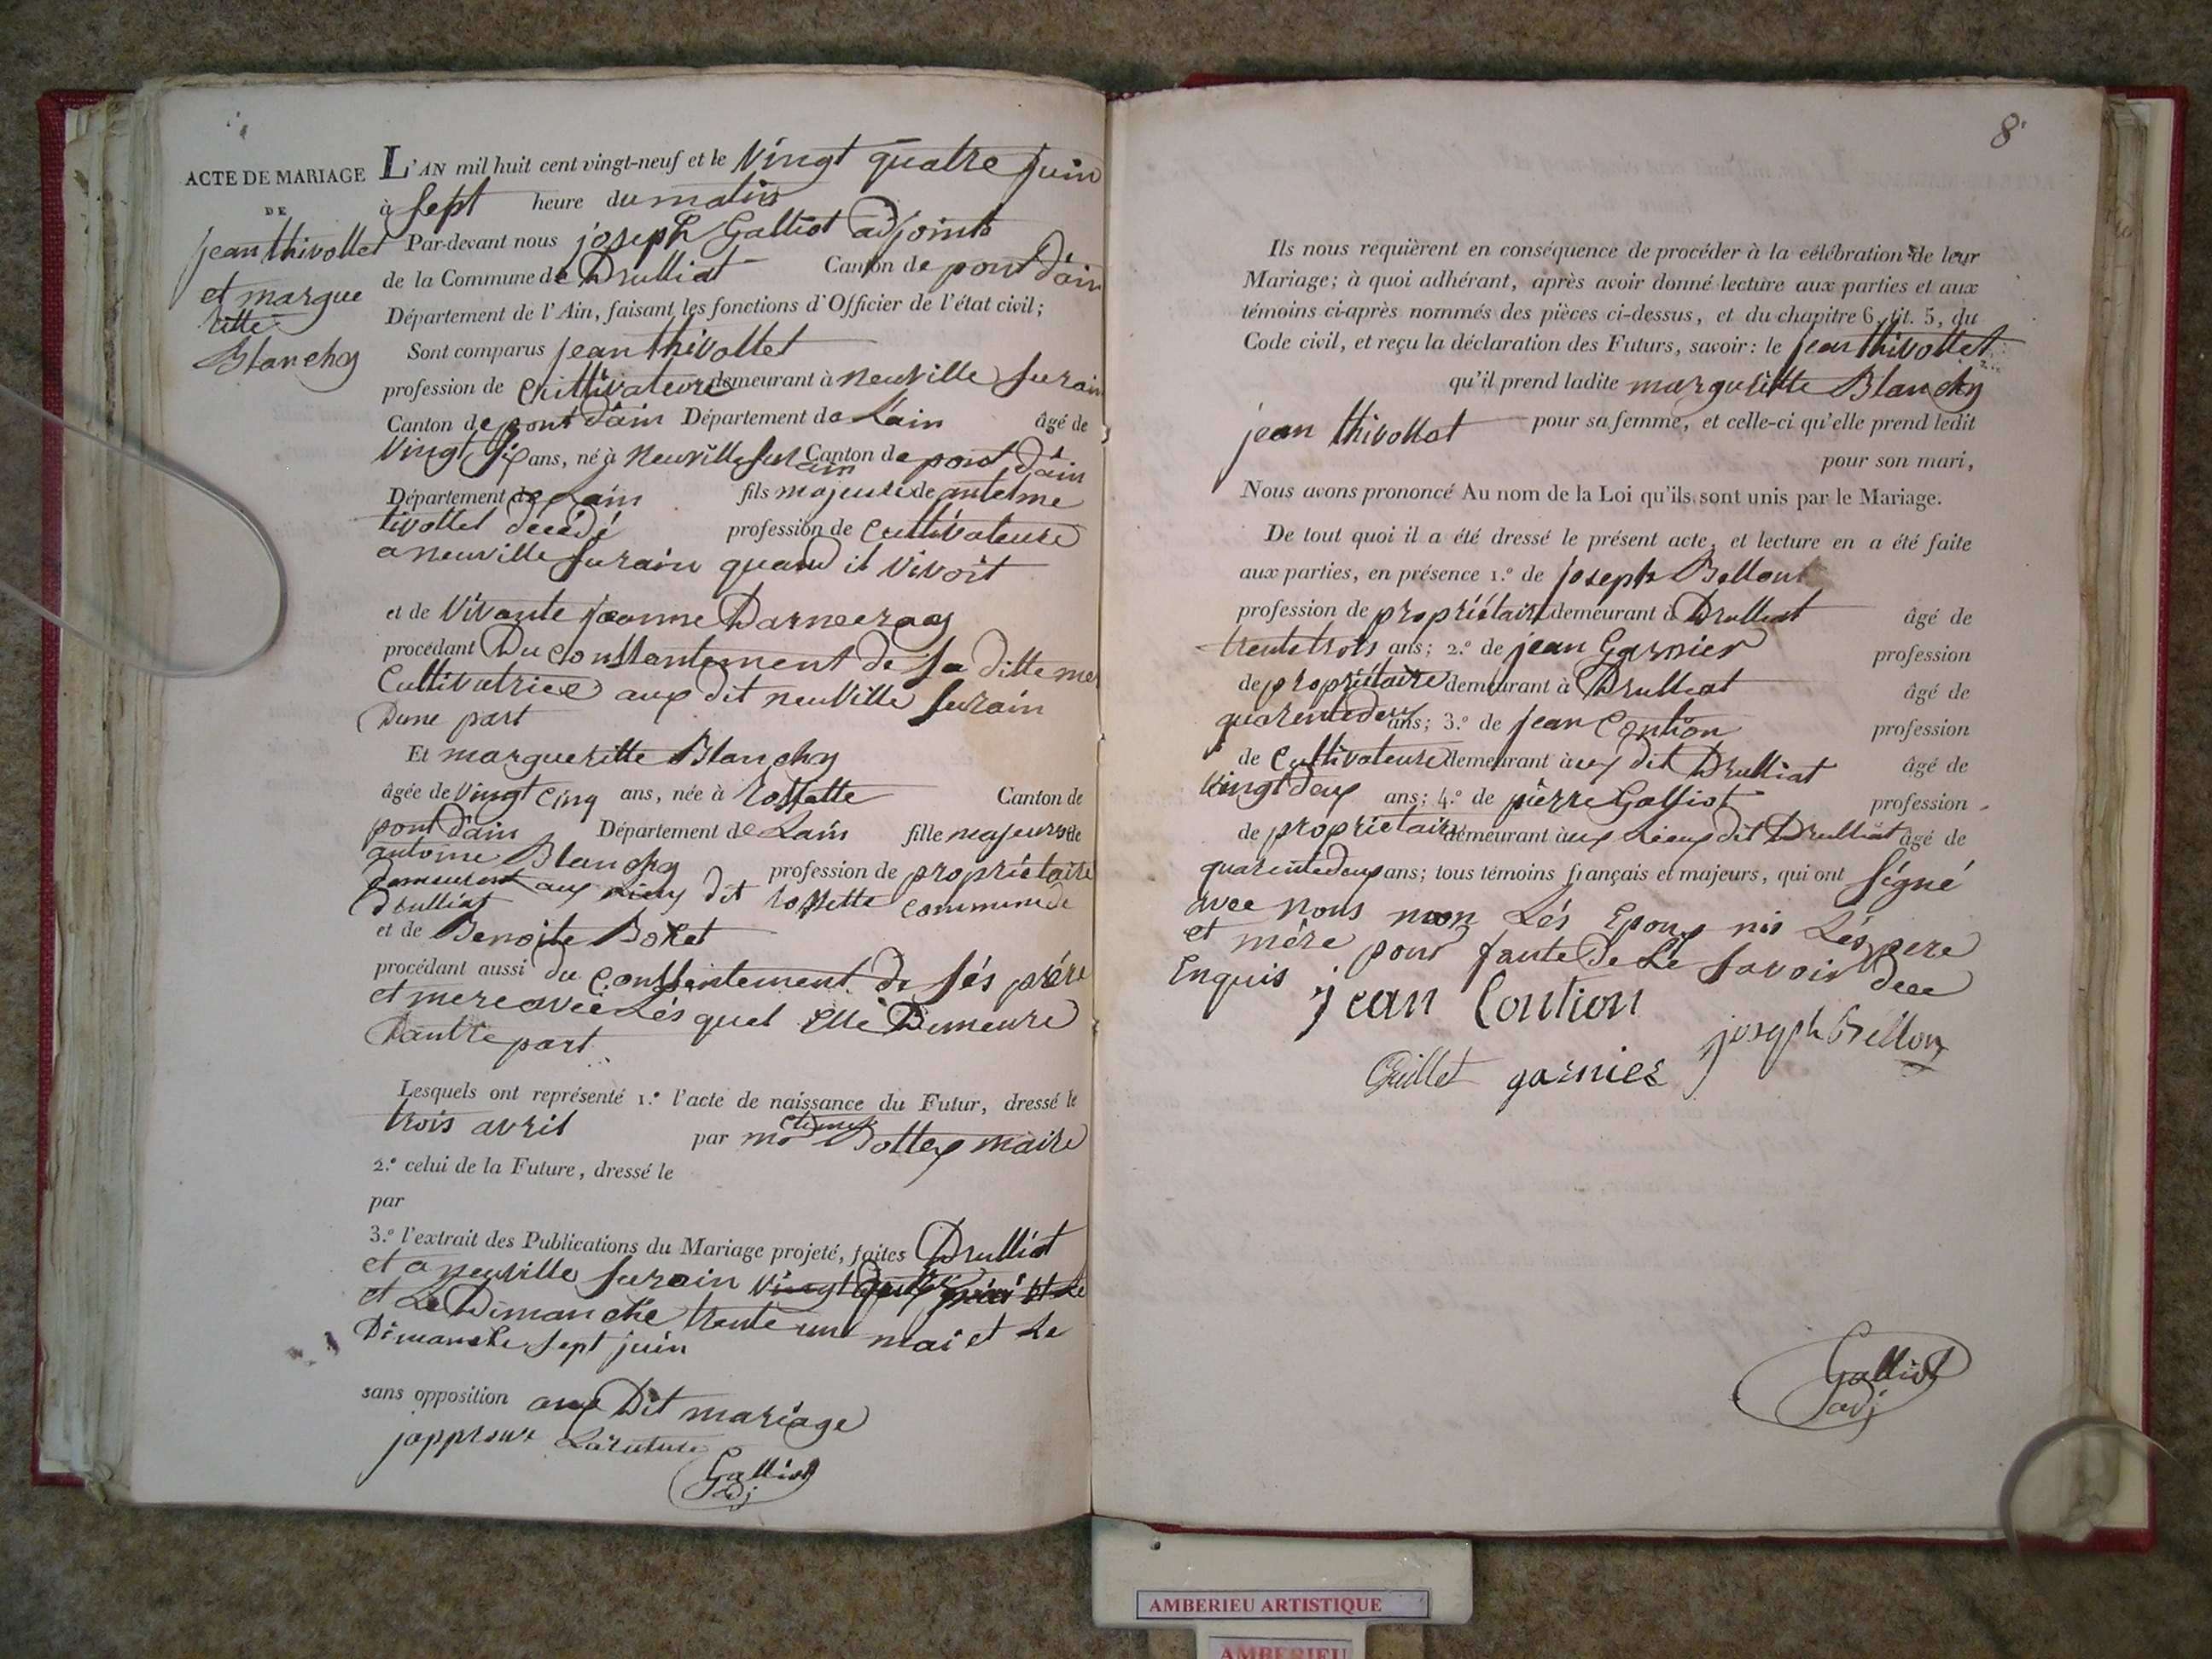 ACTE DE MARIAGE
DE
jean thivollet
et margue
ritte
Blanchy
L'AN mil huit cent vingt-neuf et le Vingt quatre juin
à sept heure du matin
Par-devant nous joseph Galliot adjoint
de la Commune de Drulliat Canton de pont d'ain
Département de l'Ain, faisant les fonctions d'Officier de l'état civil;
Sont comparus jean thivollet
profession de Cultivateure demeurant à neuville surain
Canton de pont d'ain Département de Lain âgé de
Vingt Six ans, né à neuville sur ain Canton de pont d'ain
Département de Lain fils majeure de antelme
tivollet décédé profession de Cultivateure
a neuville surain quand il vivoit
et de Vivante jeanne
procédant Du Consstantement de sa ditte me
Cultivatrice aux dit neuville surain
Dune part
Et margueritte Blanchy
âgée de vingt cinq ans, née à rossette Canton de
pont d'ain Département de Lain fille majeure de
antoine Blanchy profession de propriétaire
demeurant aux Lieux dit rossette commune de
drulliat
et de Benoite Boket
procédant aussi du Conssentement de sés père
et mere avéc Lés quel Elle Demeure
Dautre part
Lesquels ont représenté 1.º l'acte de naissance du Futur, dressé le
trois avril par mr Bottex maire
2.º celui de la Future, dressé le
par
3.º l'extrait des Publications du Mariage projeté, faites Drulliat
et a neuville surain
et Le Dimanche trente un mai et Le
Dimanche sept juin
sans opposition aux Dit mariage
japprouve Larature
Galliot
adj
8
Ils nous requièrent en conséquence de procéder à la célébration de leur
Mariage; à quoi adhérant, après avoir donné lecture aux parties et aux
témoins ci-après nommés des pièces ci-dessus, et du chapitre 6, tit. 5, du
Code civil, et reçu la déclaration des Futurs, savoir: le jean thivollet
qu'il prend ladite margueritte Blanchy
pour sa femme, et celle-ci qu'elle prend ledit
jean thivollet
pour son mari,
Nous avons prononcé Au nom de la Loi qu'ils sont unis par le Mariage.
De tout quoi il a été dressé le présent acte, et lecture en a été faite
aux parties, en présence 1.º de joseph Bellon
profession de propriétaire demeurant à Drulliat âgé de
trente trois ans; 2.º de jean Garnier profession
de propriétaire demeurant à Drulliat âgé de
quarente deux ans; 3.º de jean Contion profession
de Cultivateure demeurant aux dit Drulliat âgé de
vingt deux ans; 4.º de pierre Galliot profession
de propriétaire demeurant aux Lieux dit Drulliat âgé de
quarente deux ans; tous témoins français et majeurs, qui ont signé
avec nous non Lés Epoux nis Lés pere
et mére pour faute De Le savoir Dece
Enquis
jean Contion
joseph Bellon
garnier
Galliot
adj
AMBERIEU ARTISTIQUE
AMBERIEU